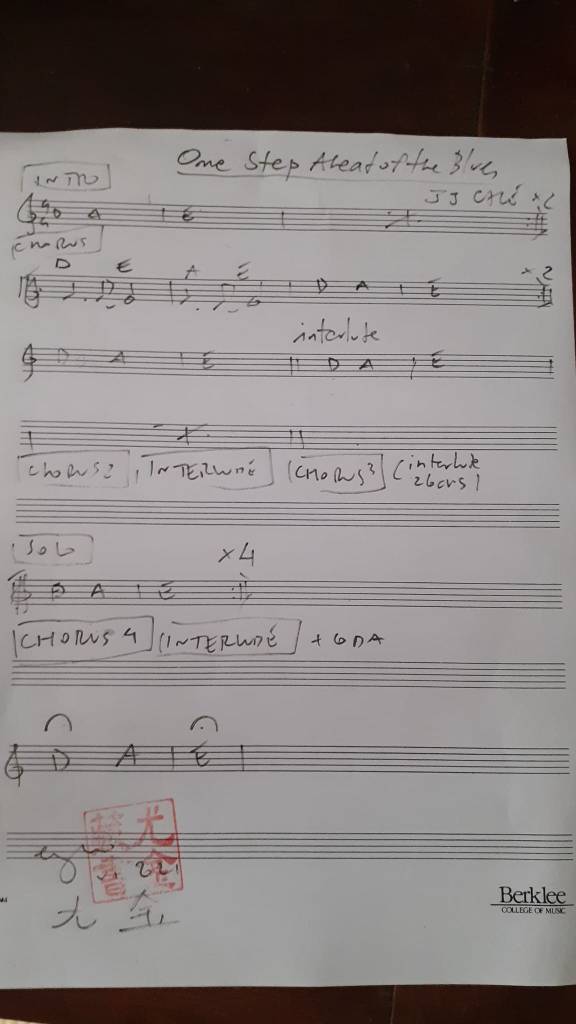 One Step Ahead of the Blues
INTRO
JJ CALE x2
4/4 D A | E
CHORUS
D E A E D A | E x2
interlute
D A | E D A | E
CHORUS 2 INTERLUDE CHORUS 3 (interlute
SOLO x4
D A | E
CHORUS 4 INTERLUDE + CODA
D A | E
尤金
尤金
Berklee
COLLEGE OF MUSIC